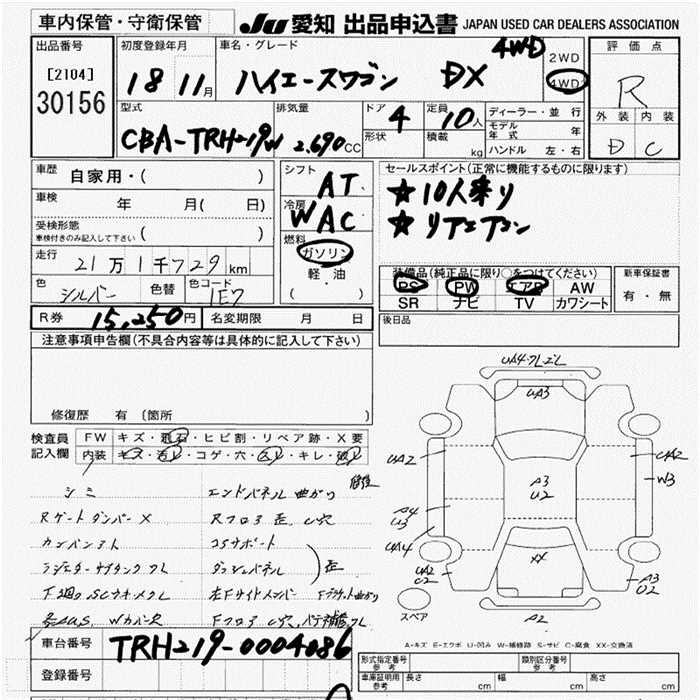 車内保管・守衛保管
JU 愛知 出品申込書 JAPAN USED CAR DEALERS ASSOCIATION
出品番号
[2104]
30156
初度登録年月
18 11月
車名・グレード
ハイエースワゴン DX 4WD
2WD
4WD
評価点
R
外装 内装
D C
型式
CBA-TRH219W
排気量
2,690cc
ドア 4
形状
定員 10人
積載 kg
ディーラー・並行
モデル年式 年
ハンドル 左・右
車歴 自家用・( )
車検 年 月( 日)
受検形態
車検付きのみ記入して下さい ( )
走行 21万1千729km
色 シルバー 色替 色コード 1E7
シフト AT
冷房 WAC
燃料 ガソリン
軽・油
( )
セールスポイント(正常に機能するものに限ります)
★10人乗り
★リアエアコン
装備品(純正品に限り○をつけてください)
PS PW エアB AW
SR ナビ TV カワシート
新車保証書
有・無
R券 15,250円 名変期限 月 日
後日品
注意事項申告欄(不具合内容等は具体的に記入して下さい)
修復歴 有(箇所 )
検査員記入欄
FW キズ・飛石・ヒビ割・リペア跡・X要
内装 キズ・汚レ・コゲ・穴・スレ・キレ・破レ
シミ エンドパネル 曲がり 修復
Rゲートダンパー X Rフロア 歪、穴
カンバン アト コSサポート
ラジエターサブタンク ワレ ダッシュパネル 歪
下廻り SC サキメクレ 左Fサイドメンバー Fラケット曲がり
Wカバー欠 Fフロア 穴、パテ補修、ワレ
UA4・ワレ・エレ
UA3
UA2
UA2
W3
A3
U2
A4
U3
UA4
UA2
C2
XX
A3
U2
A2
スペア
A-キズ E-エクボ U-凹み W-補修跡 S-サビ C-腐食 XX-交換済
車台番号 TRH219-0004086
登録番号
形式指定番号 参考
類別区分番号 参考
車庫証明用 参考 長さ cm 幅 cm 高さ cm